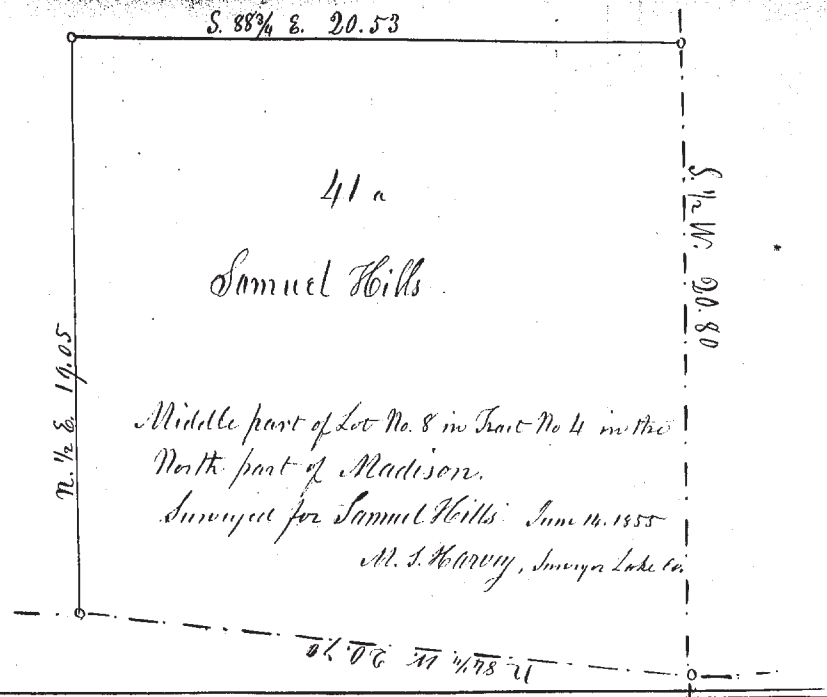 S. 88¾ E. 20.53
41 a
Samuel Hills
S. ½ W. 20.80
N. ½ E. 19.05
Middle part of Lot No. 8 in Tract No 4 in the
North part of Madison.
Surveyed for Samuel Hills June 14. 1855
M. S. Harvey, Surveyor Lake Co.
N 84¼ W 20.70